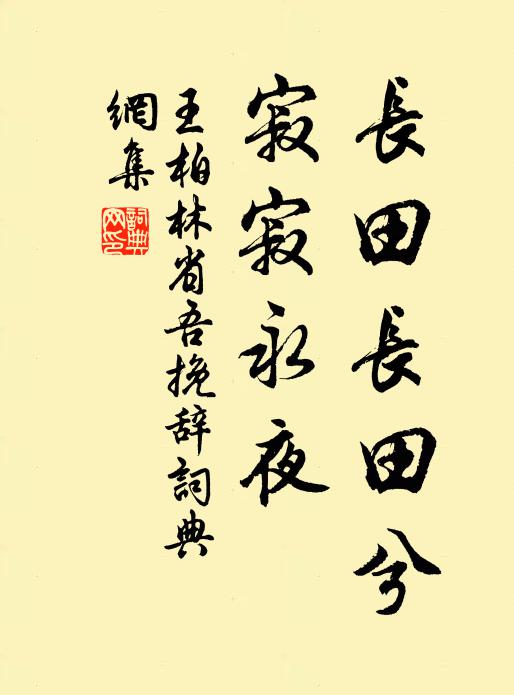 長田長田兮
寂寂永夜
王柏林省吾挽辞詞典
網集
詞典
网印